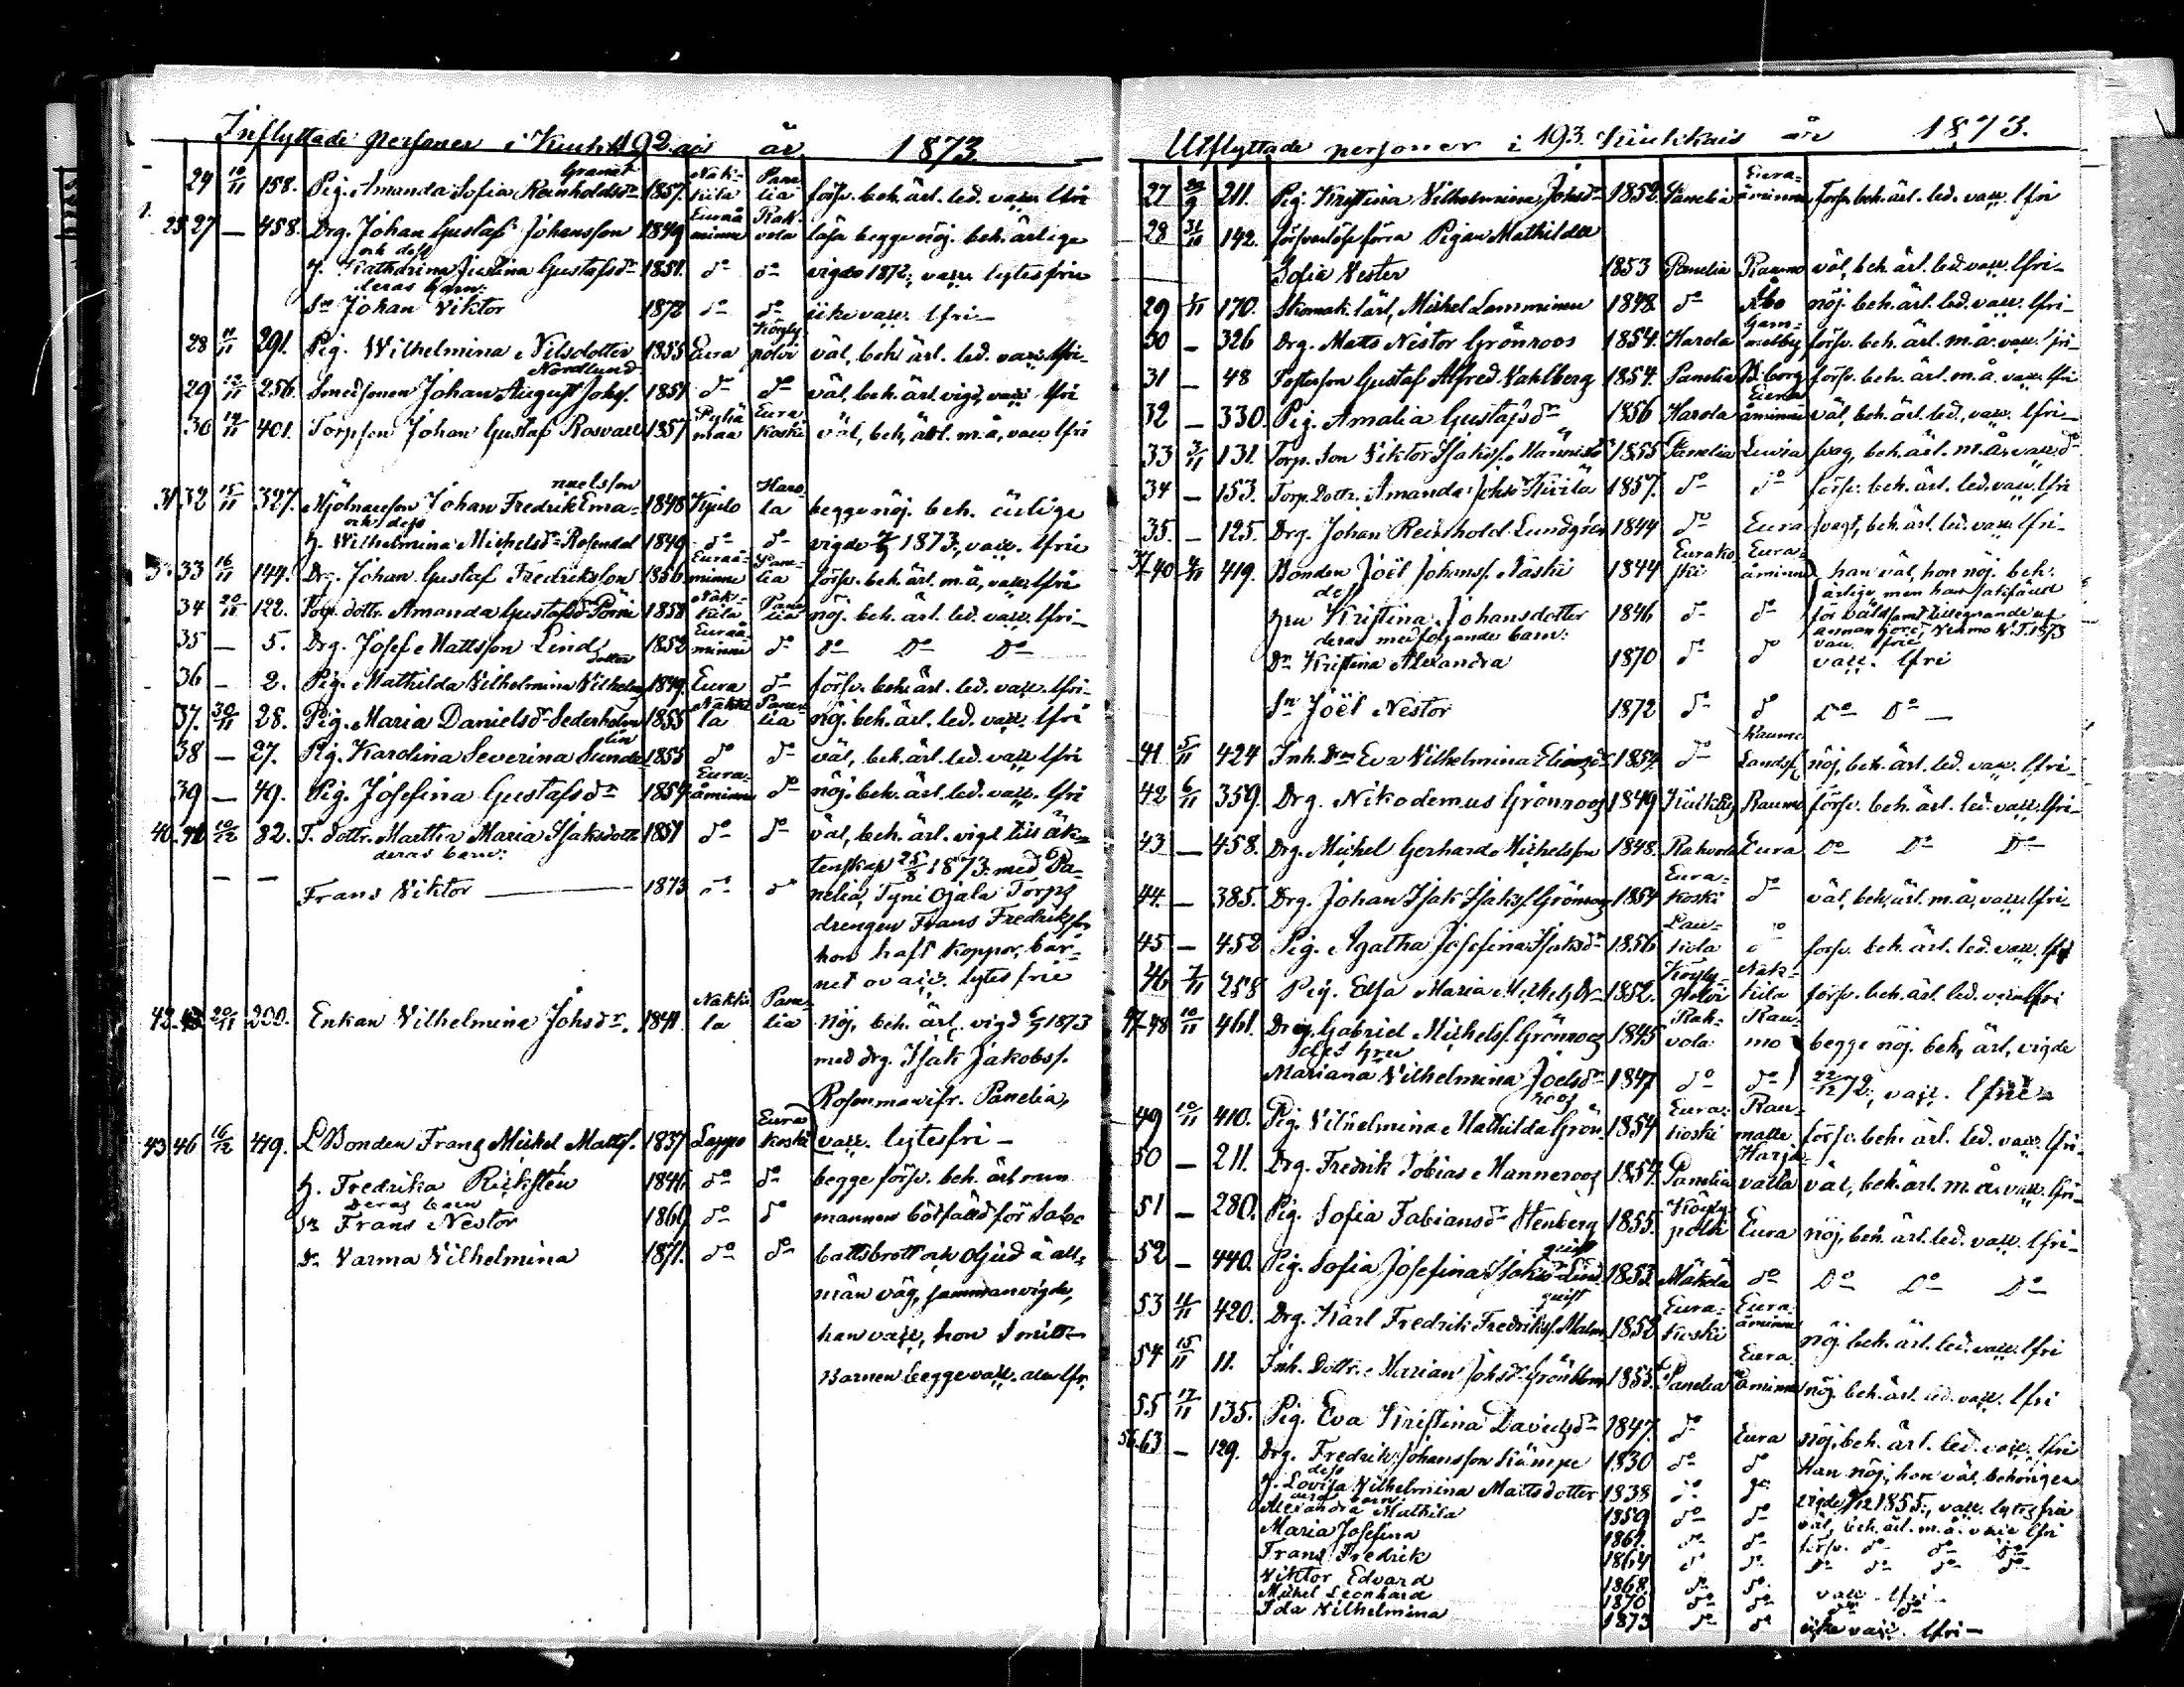 Inflyttade personer i Kiukais år 1873
192.
24 10/11 158. Pig. Amanda Sofia Reinholdsdr Granat 1857. Nakkila Panelia försv. beh. ärl. led. vacc. lfri
25 27 — 458. Drg. Johan Gustaf Johansson 1849 Euraåminne Rahvola läsa begge nöj. beh. ärlige
och dess
h. Katharina Justina Gustafsdr 1851. do do vigde 1872, vacc. lytesfrie
deras barn:
Sn Johan Viktor 1872 do do icke vacc. lfri
28 11/11 291. Pig. Wilhelmina Nilsdotter 1855 Eura Köylypolvi väl, beh. ärl. led. vacc. lfri
29 12/11 256. Smedsonen Johan August Johs. Nordlund 1851 do do väl, beh. ärl. vigd, vacc. lfri
30 14/11 401. Torpson Johan Gustaf Rosvall 1857 Pyhämaa Eurakoski väl, beh. ärl. m.å, vacc. lfri
31.32 15/11 327. Mjölnaresson Johan Fredrik Emanuelsson 1848 Kjulo Harola begge nöj. beh. ärlige
och dess
h. Wilhelmina Michelsdr Rosendal 1846 do do vigde 1873, vacc. lfrie
33 16/11 144. Drg. Johan Gustaf Fredriksson 1856 Euraåminne Panelia försv. beh. ärl. m.å, vacc. lfri
34 20/11 122. Torp. dottr. Amanda Gustafsdr 1858 Nakkila Panelia nöj. beh. ärl. led. vacc. lfri
35 — 5. Drg. Josef Mattsson Lind 1852 Euraåminne do Do Do Do
36 — 2. Pig. Mathilda Vilhelmina Vilhelmsdotter 1849 Eura do försv. beh. ärl. led. vacc. lfri
37. 30/11 28. Pig. Maria Danielsdr Sederholm 1855 Nakkila Panelia nöj. beh. ärl. led. vacc. lfri
38 — 27. Pig. Karolina Severina Sundelin 1855 do do väl, beh. ärl. led. vacc. lfri
39 — 49. Pig. Josefina Gustafsdr 1854 Euraåminne do nöj. beh. ärl. led. vacc. lfri
40. 10/12 82. T. dottr. Martha Maria Isaksdottr 1851 do do väl, beh. ärl. vigd till äk-
deras barn:
tenskap 25/8 1873. med Pa-
— — Frans Viktor 1873 do do nelia, Tyni Ojala Torps
drengen Frans Fredriksson
hon haft koppor, bar-
net ovacc. lytesfrie
42. 20/11 200. Enkan Vilhelmina Johsdr. 1841. Nakkila Panelia nöj. beh. ärl. vigd 1873
med drg. Isak Jakobs.
Rosenman ifr. Panelia,
vacc. lytesfri —
43 46 16/12 419. LBonden Frans Michel Matts. 1837 Lappo Eurakoski
h. Fredrika Rickstén 1846 do do begge försv. beh. ärl men
Deras barn
Sn Frans Nestor 1869 do do mannen bötfälld för sab-
Dr Varma Vilhelmina 1871. do do battsbrott och oljud å all-
män väg, sammanvigde,
han vacc., hon
Barnen begge vacc. alla lfr.
Utflyttade personer i Kiukais år 1873.
193.
27 29/9 211. Pig. Kristina Vilhelmina Johsdr 1852 Panelia Euraåminne Försv. beh. ärl. led. vacc. lfri
28 31/10 142. förra Pigan Mathilda
Sofia Nester 1853 Panelia Raumo väl, beh. ärl. led. vacc. lfri
29 1/11 170. Skomak. lärl, Michel Lamminen 1848. do Åbo nöj. beh. ärl. led. vacc. lfri
30 — 326 Drg. Matts Nestor Grönroos 1854. Harola Gammelby försv. beh. ärl. m.å. vacc. lfri
31 — 48 Fosterson Gustaf Alfred Vahlberg 1854. Panelia Viborg försv. beh. ärl. m.å. vacc. lfri
32 — 330. Pig. Amalia Gustafsdr 1856 Harola Euraåminne väl, beh. ärl. led., vacc. lfri
33 3/11 131. Torp. Son Viktor Isaks. 1855 Panelia Luvia svag, beh. ärl. m.å. vacc. do
34 — 153. Torp. Dottr. Amanda Johsdr 1857. do do försv. beh. ärl. led. vacc. lfri
35. — 125. Drg. Johan Reinhold Lundgren 1844 do Eura svagt, beh. ärl. led. vacc. lfri
37-40 4/11 419. Bonden Joël Johans. Kaski 1844 Eurakoski Euraåminne han väl, hon nöj. beh.
ärlige, men han sakfälld
dess
hru Kristina Johansdotter 1846 do do för våldsamt
deras medföljande barn:
vacc. lfrie
Dr Kristina Alexandra 1870 do do vacc. lfri
Sn Joël Nestor 1872 do do Do Do
41 5/11 424 Inh. Dtr Eva Vilhelmina Eliaedr 1854. do Raumo Landsf. nöj, beh. ärl. led. vacc. lfri
42 6/11 359. Drg. Nikodemus Grönroos 1849 Kiukais Raumo försv. beh. ärl. led. vacc. lfri
43 — 458. Drg. Michel Gerhard Michelsson 1848. Rahvola Eura Do Do Do
44. — 385. Drg. Johan Isak Isaks. Grönroos 1854 Eurakoski do väl, beh. ärl. m.å, vacc. lfri
45 — 452 Pig. Agatha Josefina Isaksdr 1856 do försv. beh. ärl. led. vacc. lfri
46 7/11 258 Pig. Elsa Maria Michelsdr 1852. Köylypolvi Nakkila försv. beh. ärl. led. vacc. lfri
47-48 10/11 461. Drg. Gabriel Michels. Grönroos 1845 Rahvola Raumo begge nöj. beh, ärl, vigde
dess hru
Mariana Vilhelmina Joelsdr 1847 do do 22/12 72, vacc. lfrie
49 10/11 410. Pig. Vilhelmina Mathilda Grönroos 1854 Eurakoski försv. beh. ärl. led. vacc. lfri
50 — 211. Drg. Fredrik Tobias Manneroos 1854. Panelia Harjavalla väl, beh. ärl. m.å. vacc. lfri
51 — 280. Pig. Sofia Fabiansdr Stenberg 1855. Köylypolvi Eura nöj, beh. ärl. led. vacc. lfri
52 — 440. Pig. Sofia Josefina Isaksdr Lindquist 1853 Mäkälä do Do Do Do
53 11/11 420. Drg. Karl Fredrik Fredriks. Malmquist 1852 Eurakoski Euraåminne nöj. beh. ärl. led. vacc. lfri
54 15/11 11. Inh. Dottr. Marian Johsdr Grönblom 1855. Panelia Euraåminne nöj. beh. ärl. led. vacc. lfri
55 17/11 135. Pig. Eva Kristina Davidsdr 1847. do Eura nöj. beh. ärl. led. vacc. lfri
56-63 — 129. Drg. Fredrik Johansson Kämpe 1830 do do Han nöj., hon väl, behörigen
dess
h. Lovisa Vilhelmina Mattsdotter 1838 do do vigde 1855, vacc. lytesfria
deras barn:
Alexandra Mathila 1859 do do väl, beh. ärl. m.å. vacc lfri
Maria Josefina 1861. do do försv. do do do
Frans Fredrik 1864 do do do do do do
Viktor Edvard 1868. do do vacc lfri
Michel Leonhard 1870 do do do do
Ida Vilhelmina 1873 do do icke vacc. lfri —